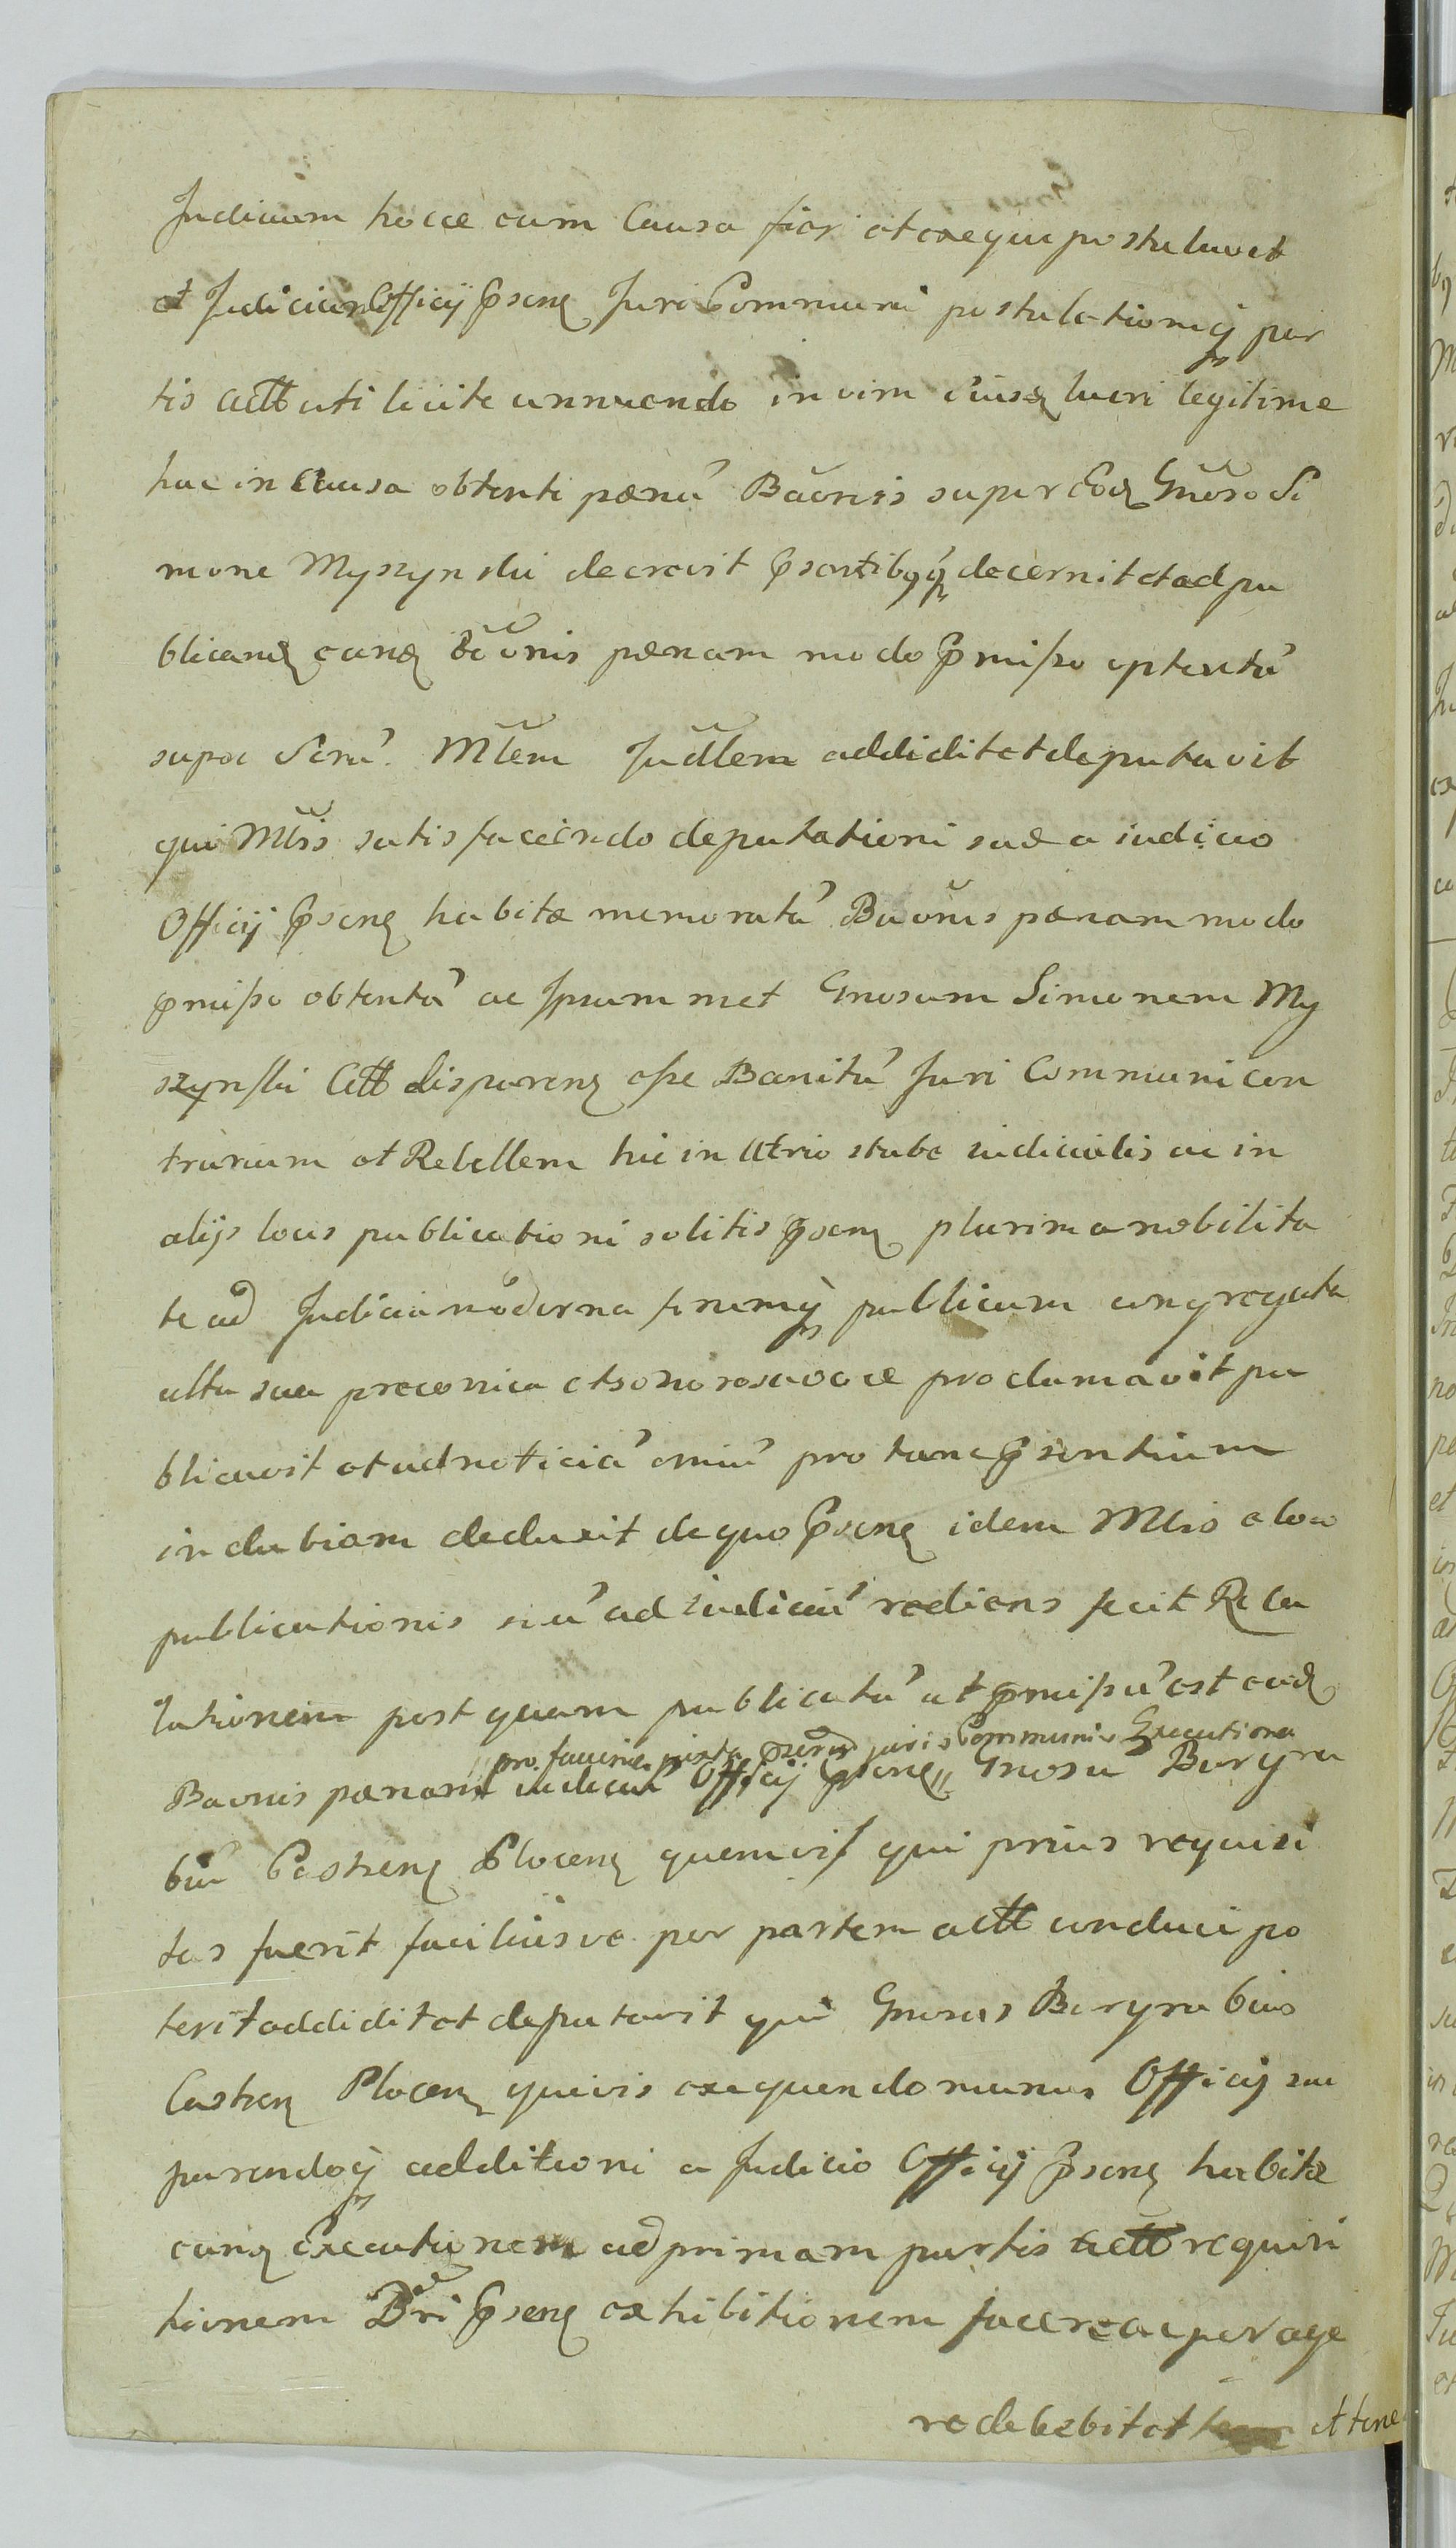 Judicium hocce cum Causa fieri et exequi postulavit
et Judicium Officÿ Pńseng Juri Communi postulationiq̃ par
tis actt uti licite annuendo in vim eiusq lucri legitime
hac in Causa obtenti pænã Bãonis super Eodq Gnõso Si
mone Myszynski decrevit Pńsentibq́q̃ decernit et ad pu
blicandq eandq Bãonis pænam modo pŕmisso optentã
super Scrũ. Mt̃lem Jud̃lem addidit et deputavit
qui Mt̃lis satisfaciendo deputationi suæ a iudicio
Officÿ Pńseng habitæ memoratã Baõnis pænam modo
pŕmisso obtentã ac Ipsummet Gnosum Simonem My
szynski Citt disparenq esse Banitũ Juri Communi con
trarium et Rebellem hic in Atrio stubæ iudicialis ac in
alÿs locis publicationi solitis Pńseng plurima nobilita
te ad Judicia moderna forumq̃ publicum congregata
alta sua preconica et sonorosa voce proclamavit pu
blicavit et ad noticiã omiũ pro tunc pńsentium
indubiam deduxit de quo Pńseng idem Mtlis a loco
publicationis siũ ad iudiciũ rediens fecit Rela
lationem post quam publicatã ut pŕmissũ est eadq
pro facienda iuxta juris Communis Executione
Baonis pænam iudiciũ Officÿ Pńseng Gnosũ Burgra
biũ Castrenq Plocenq quemvis qui prius requisi
tus fuerit faciliusve per partem actt conduci po
terit addidit et deputavit qui Gnosus Burgrabius
Castrenq Plocenq quivis exequendo munus Officÿ sui
parendoq̃ additioni a Judicio Officÿ Pńseng habitæ
eanq Executionem ad primam partis actt requisi
tionem Dc̃ri Pńseng exhibitionem facere ac perage
re debebit et et tene